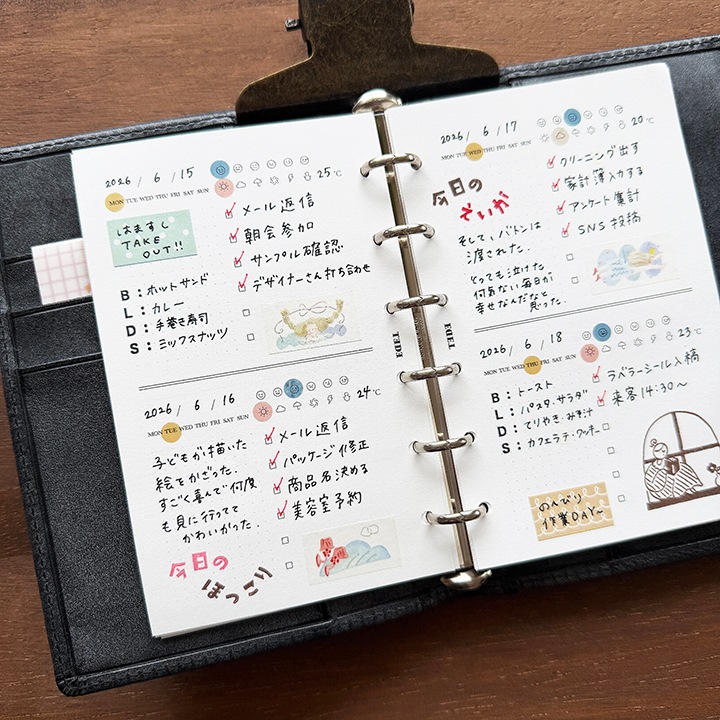 2026 / 6 / 15
MON TUE WED THU FRI SAT SUN
25℃
はますし
TAKE
OUT!!
B：ホットサンド
L：カレー
D：手巻き寿司
S：ミックスナッツ
メール返信
朝会参加
サンプル確認
デザイナーさん打ち合わせ
2026 / 6 / 16
MON TUE WED THU FRI SAT SUN
24℃
子どもが描いた
絵をかざった。
すごく喜んで何度
も見に行ってて
かわいかった。
今日の
ほっこり
メール返信
パッケージ修正
商品名決める
美容室予約
2026 / 6 / 17
MON TUE WED THU FRI SAT SUN
20℃
今日の
えいが
そして、バトンは
渡された。
とっても泣けた。
何気ない毎日が
幸せなんだなと
思った。
クリーニング出す
家計簿入力する
アンケート集計
SNS投稿
2026 / 6 / 18
MON TUE WED THU FRI SAT SUN
23℃
B：トースト
L：パスタ・サラダ
D：てりやき・みそ汁
S：カフェラテ・クッキー
ラベラーシール入稿
来客 14:30～
のんびり
作業DAY～